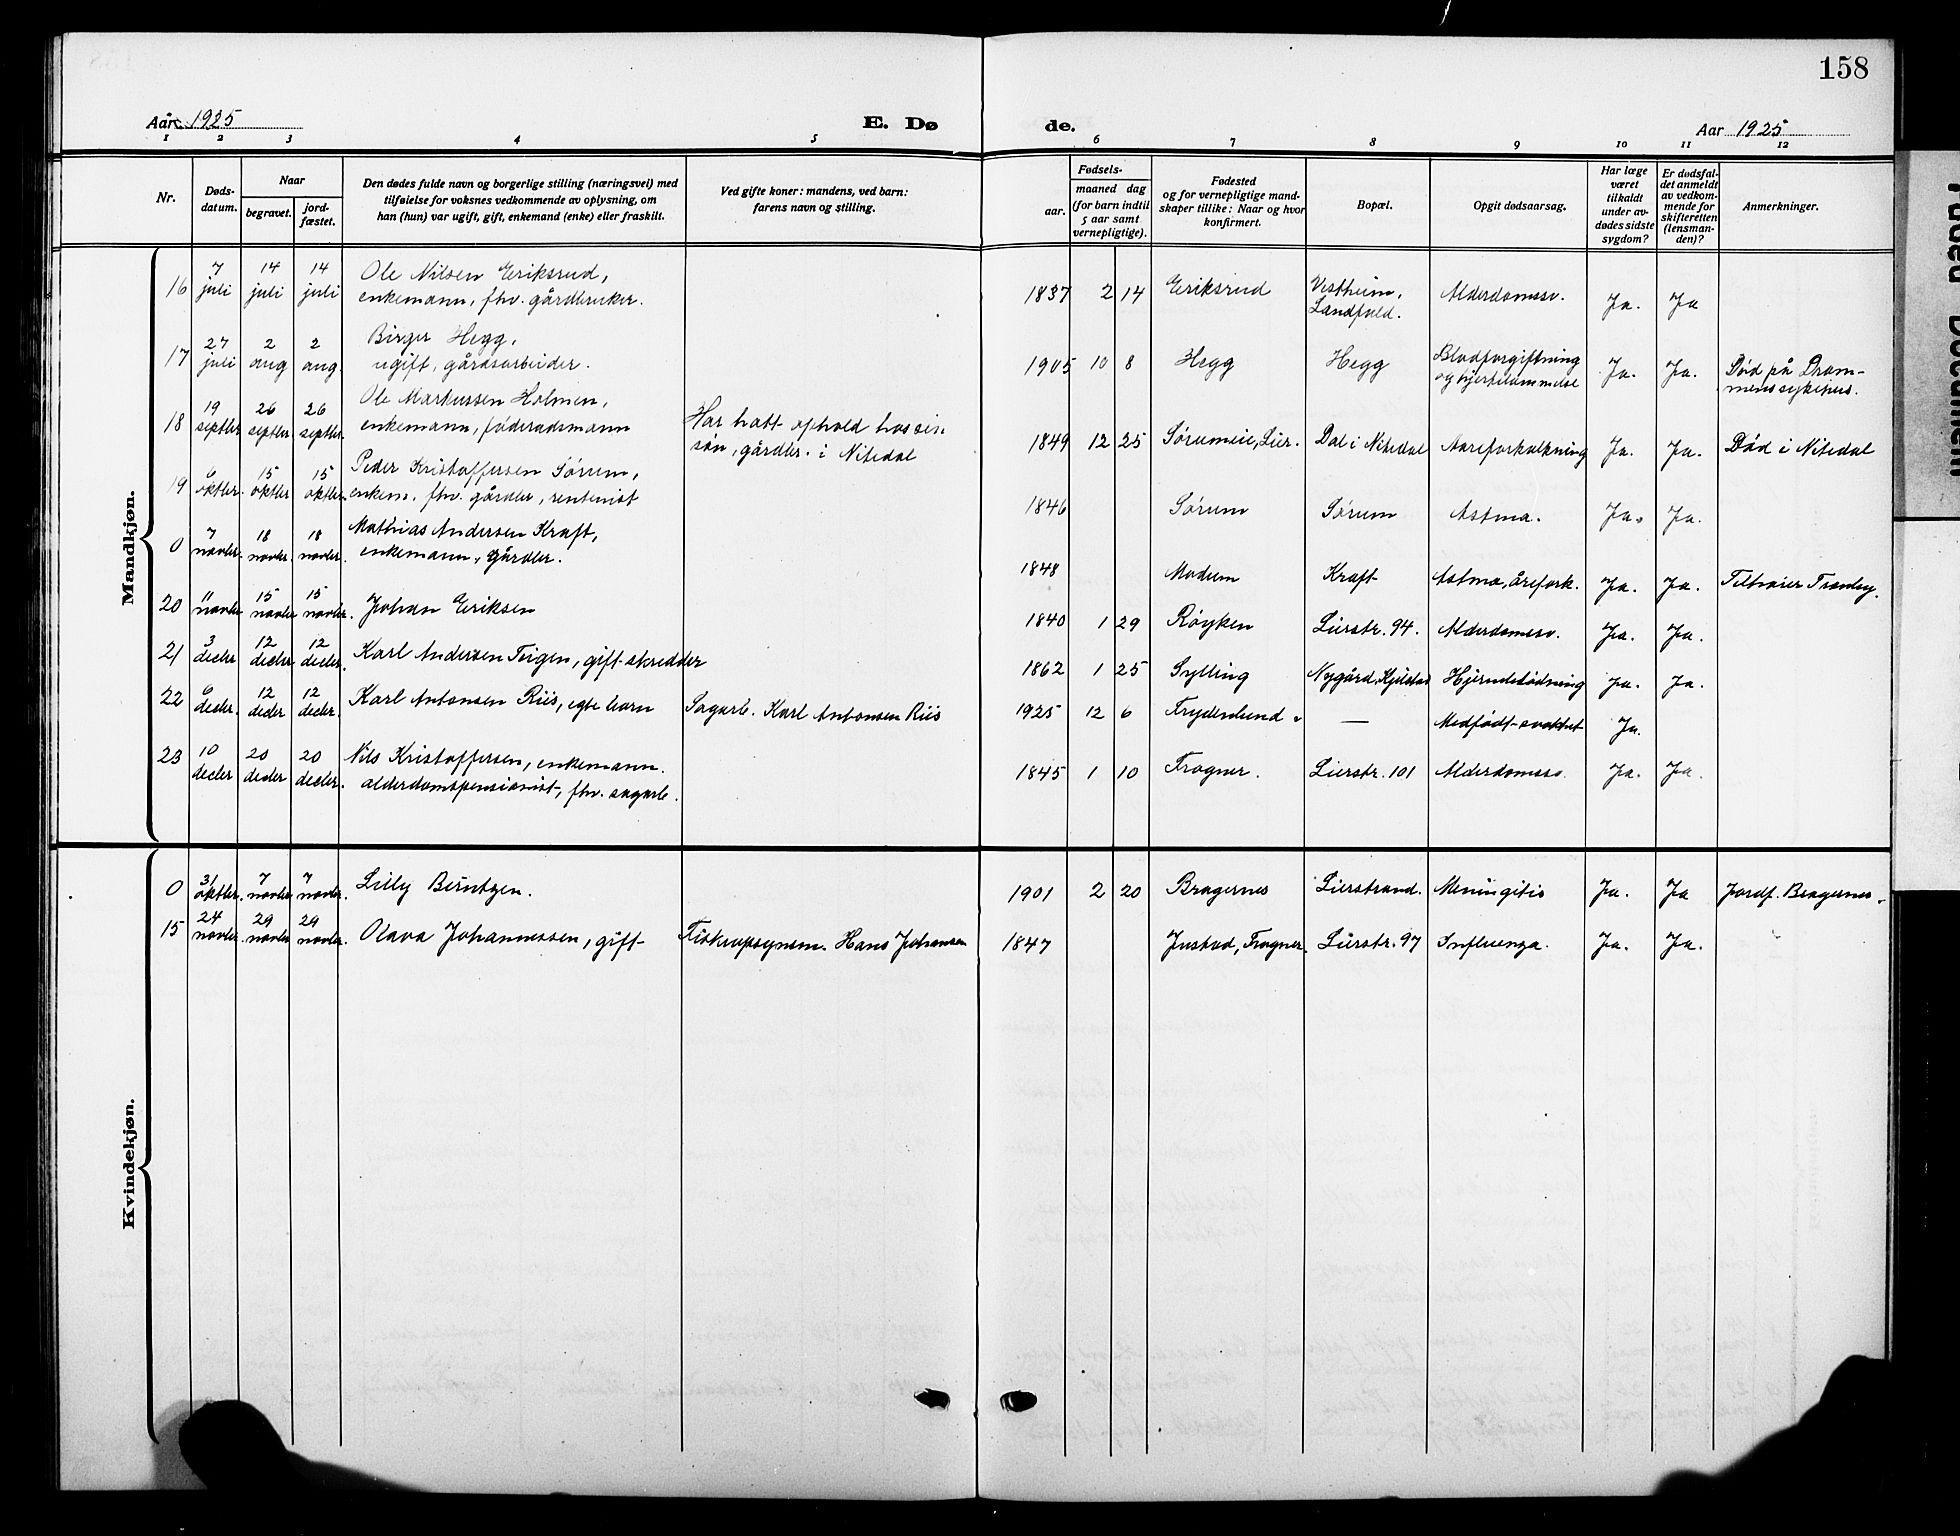 158
Aar 1925
E. Dø
de.
Aar 1925
1 2 3 4 5 6 7 8 9 10 11 12
Nr.
Døds-
datum.
Naar
begravet.
jord-
fæstet.
Den dødes fulde navn og borgerlige stilling (næringsvei) med
tilføielse for voksnes vedkommende av oplysning, om
han (hun) var ugift, gift, enkemand (enke) eller fraskilt.
Ved gifte koner: mandens, ved barn:
farens navn og stilling.
Fødsels-
aar.
maaned dag
(for barn indtil
5 aar samt
vernepligtige).
Fødested
og for vernepligtige mand-
skaper tillike: Naar og hvor
konfirmert.
Bopæl.
Opgit dødsaarsag.
Har læge
været
tilkaldt
under av-
dødes sidste
sygdom?
Er dødsfal-
det anmeldt
av vedkom-
mende for
skifteretten
(lensman-
den)?
Anmerkninger.
Mandkjøn.
16 7 juli 14 juli 14 juli Ole Nilsen Eriksrud,
enkemann, fhv. gårdbruker.
1837 2 14 Eriksrud Vestheim, Alderdomssv. Ja. Ja
Landfald.
17 27 juli 2 aug 2 aug. Birger Hegg,
ugift, gårdsarbeider.
1905 10 8 Hegg Hegg Blodforgiftning Ja. Ja. Død på Dram-
og hjertelammelse menssykehus.
18 19 septbr. 26 septbr. 26 septbr. Ole Markussen Holmen,
enkemann, føderadsmann
Har hatt ophold hos sin
søn, gårdbr. i Nitedal
1849 12 25 Sørumeie, Lier. Dal i Nitedal Aareforkalkning Ja. Ja. Død i Nitedal
19 6 oktbr. 15 oktbr. 15 oktbr. Peder Kristoffersen Sørum,
enkem. fhv. gårdbr, rentenist
1846 Sørum Sørum Astma. Ja. Ja.
0 7 novbr. 18 novbr. 18 novbr. Mathias Andersen Kraft,
enkemann, Gårdbr.
1848 Modum Kraft Astma, årefork. Ja. Ja. Tilhører Tranby.
20 11 novbr 15 novbr 15 novbr. Johan Eriksen
1840 1 29 Røyken Lierstr. 94. Alderdomssv. Ja. Ja.
21 3 decbr 12 decbr 12 decbr. Karl Andersen Teigen, gift skredder
1862 1 25 Sylling Nygård, Kjelstad Hjerneblødning Ja. Ja.
22 6 decbr. 12 decbr 12 decbr. Karl Antonsen Riis, egte barn Sagarb. Karl Antonsen Riis
1925 12 6 Frydenlund — Medfødt svakhet Ja.
23 10 decbr 20 decbr 20 decbr. Nils Kristoffersen, enkemann.
alderdomspensionist, fhv. sagarb.
1845 1 10 Frogner. Lierstr. 101 Alderdomssv. Ja. Ja.
Kvindekjøn.
0 31 oktbr. 7 novbr 7 novbr. Lilly Berntzen.
1901 2 20 Bragernes Lierstrand. Meningitis Ja. Ja Jordf. Bragernes.
15 24 novbr. 29 novbr 29 novbr. Olava Johannessen, gift Fiskeopsynsm. Hans Johansen
1847 Justad, Frogner. Lierstr. 97 Influenza. Ja. Ja.